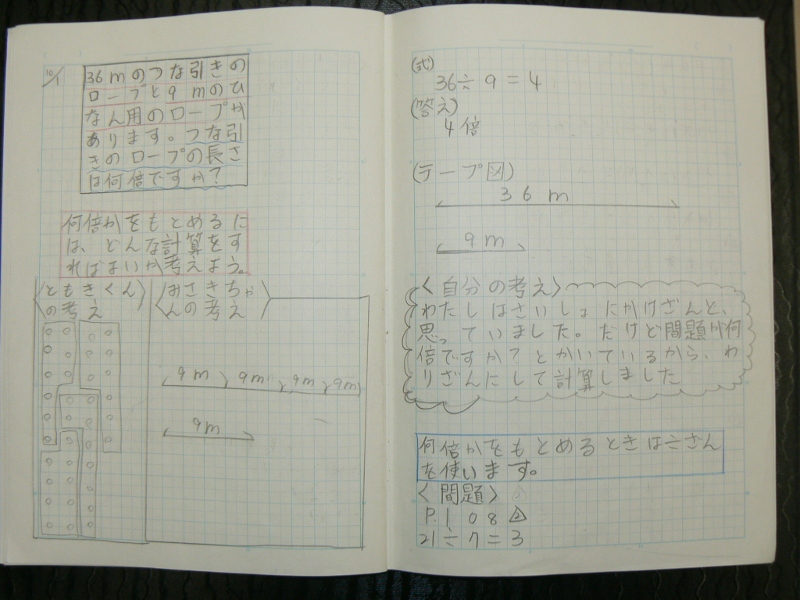 10/1
36mのつな引きの
ロープと9mのひ
なん用のロープが
あります。つな引
きのロープの長さ
は何倍ですか?
何倍かをもとめるに
は、どんな計算をす
ればよいか考えよう。
〈ともきくん
の考え〉
〈みさきちゃ
んの考え〉
9m 9m 9m 9m
9m
(式)
36÷9=4
(答え)
4倍
(テープ図)
36m
9m
〈自分の考え〉
わたしはさいしょにかけざんと、
思っていました。だけど問題が何
倍ですか?とかいているから、わ
りざんにして計算しました
何倍かをもとめるときは÷ざん
を使います。
〈問題〉
P.108
21÷7=3